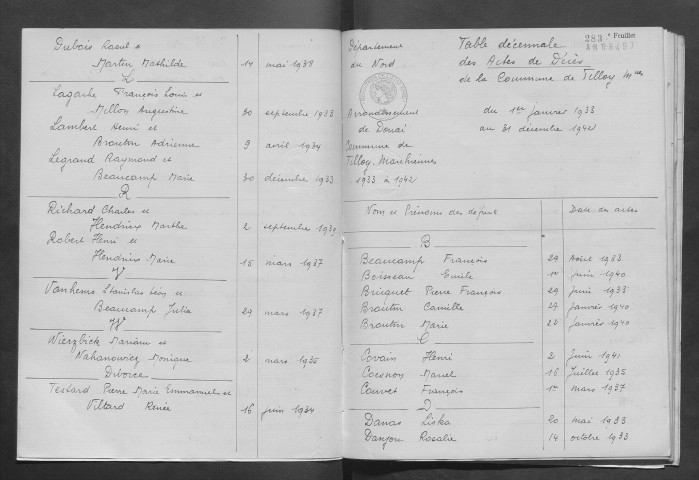 Dubois Raoul &
Martin Mathilde 14 mai 1938
L
Lagache François Louis et
Millon Augustine 30 septembre 1933
Lambert Henri et
Brouton Adrienne 9 avril 1934
Legrand Raymond et
Beaucamp Marie 30 décembre 1933
R
Richard Charles et
Hendrix Marthe 2 septembre 1939
Robert Henri et
Hendrix Marie 15 mars 1937
V
Vanhems Stanislas Léon et
Beaucamp Julia 29 mars 1937
W
Wierzbick Mariann et
Nahanowicz Monique 2 mars 1935
Divorce
Testard Pierre Marie Emmanuel et
Viltard Renée 16 juin 1934
283 e Feuillet
Département
du Nord
Arrondissement
de Douai
Commune de
Tilloy-Marchiennes
1933 à 1942
Table décennale
des Actes de Décès
de la Commune de Tilloy
du 1er janvier 1933
au 31 décembre 1942
Nom et Prénoms des défunts Date des actes
B
Beaucamp François 29 Août 1933
Boisseau Emile 1er juin 1940
Bricquet Pierre François 29 juin 1933
Brouton Camille 27 janvier 1940
Brouton Marie 22 janvier 1940
C
Covain Henri 2 juin 1941
Coesnon Marcel 16 juillet 1935
Couvet François 1er mars 1937
D
Danas Liska 20 mai 1933
Danjou Rosalie 14 octobre 1933